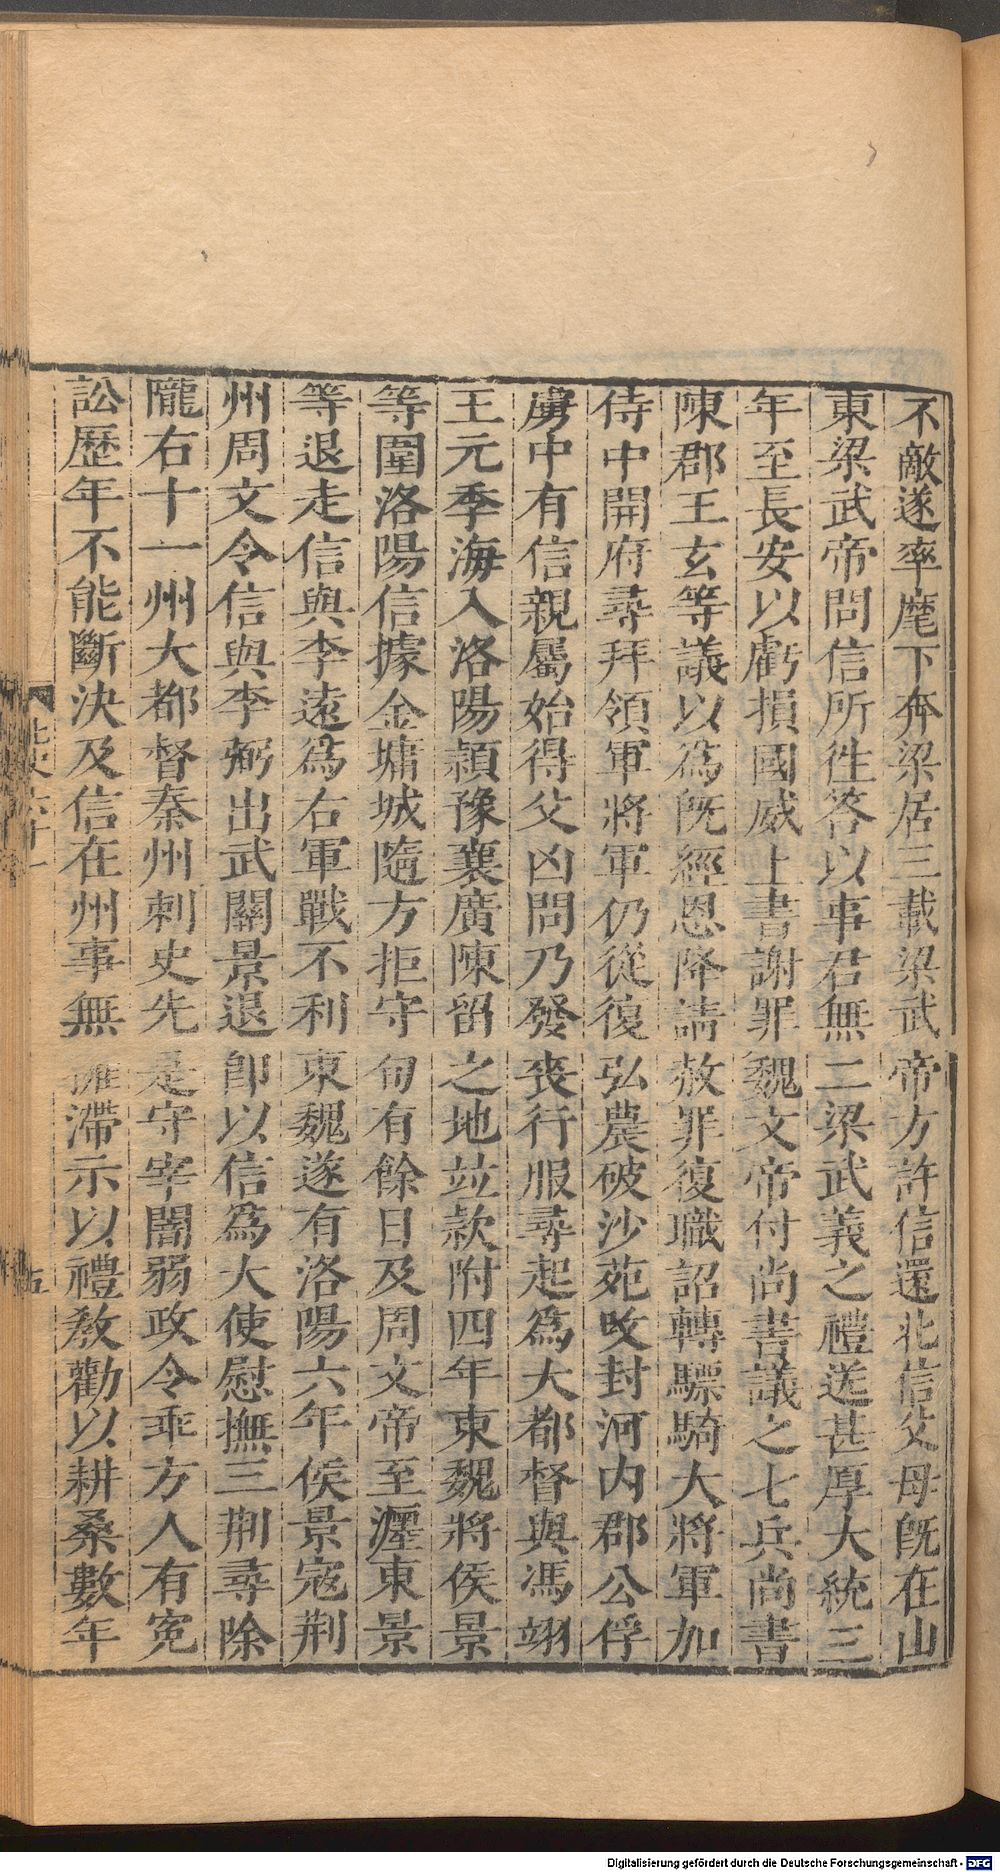 不敵遂率麾下奔梁居三載梁武帝方許信還北信父母旣在山
東梁武帝問信所徃答以事君無二梁武義之禮送甚厚大統三
年至長安以虧損國威上書謝罪魏文帝付尚書議之七兵尚書
陳郡王玄等議以爲旣經恩降請赦罪復職詔轉驃騎大將軍加
侍中開府尋拜領軍將軍仍從復弘農破沙苑攺封河內郡公俘
虜中有信親屬始得父凶問乃發喪行服尋起爲大都督與馮翊
王元季海入洛陽頴豫襄廣陳留之地竝款附四年東魏將侯景
等圍洛陽信據金墉城隨方拒守旬有餘日及周文帝至瀍東景
等退走信與李遠爲右軍戰不利東魏遂有洛陽六年侯景寇荆
州周文令信與李弼出武關景退卽以信爲大使慰撫三荆尋除
隴右十一州大都督秦州刺史先是守宰闇弱政令乖方人有寃
訟歷年不能斷決及信在州事無滯示以禮教勸以耕桑數年
北史六十一
五
Digitalisierung gefördert durch die Deutsche Forschungsgemeinschaft - DFG